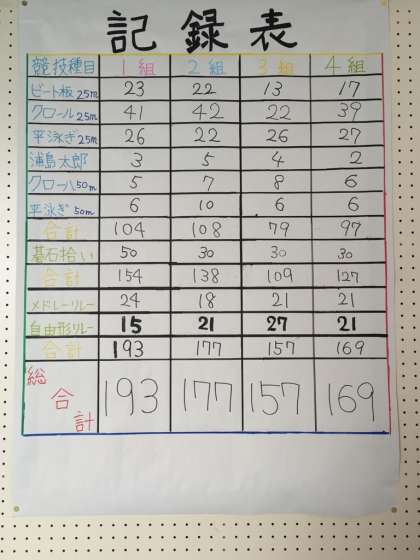 記録表
競技種目 1組 2組 3組 4組
ビート板25m 23 22 13 17
クロール25m 41 42 22 39
平泳ぎ25m 26 22 26 27
浦島太郎 3 5 4 2
クロール50m 5 7 8 6
平泳ぎ50m 6 10 6 6
合計 104 108 79 97
碁石拾い 50 30 30 30
合計 154 138 109 127
メドレーリレー 24 18 21 21
自由形リレー 15 21 27 21
合計 193 177 157 169
総合計 193 177 157 169